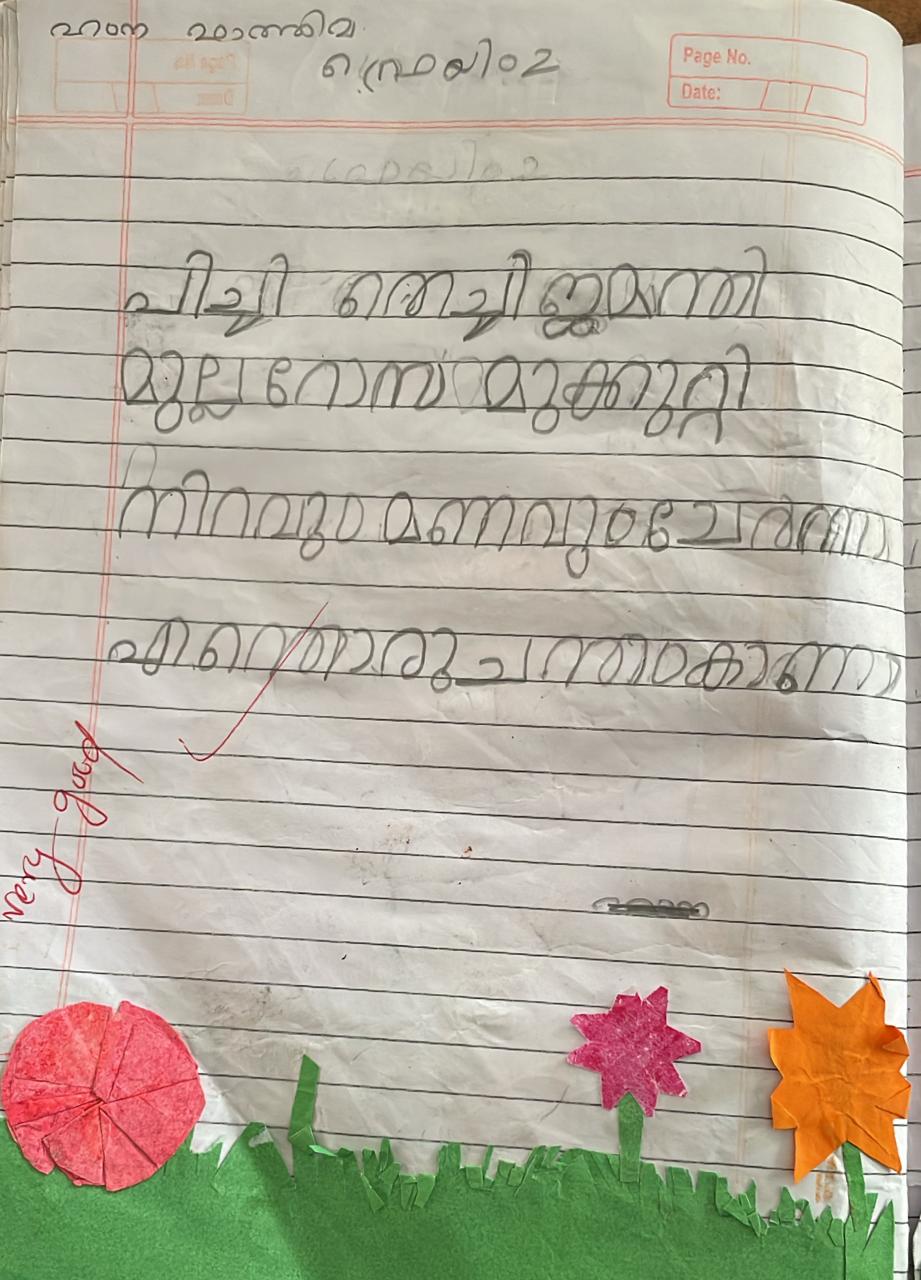 ഹന ഫാത്തിമ
Page No.
Date:
പിച്ചി തെച്ചി ജമന്തി
മുല്ല റോസ മുക്കുറ്റി
നിറവും മണവും ചേരുന്ന
എന്തൊരു ചന്തം കാണാ
very good